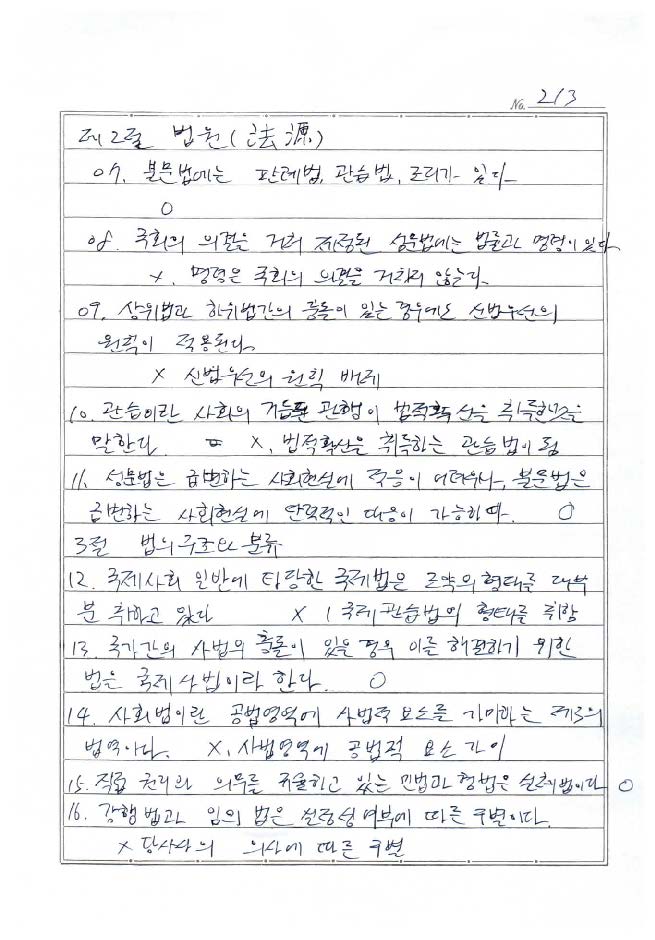 No. 213
제2절 법원(法源)
07. 불문법에는 판례법, 관습법, 조리가 있다
O
08. 국회의 의결을 거쳐 제정된 성문법에는 법률과 명령이 있다
X, 명령은 국회의 의결을 거치지 않는다.
09. 상위법과 하위법간의 충돌이 있는 경우에도 신법우선의
원칙이 적용된다.
X 신법우선의 원칙 배제
10. 관습이란 사회의 거듭된 관행이 법적확신을 취득한것을
말한다. X, 법적확신을 취득하는 관습법이 됨
11. 성문법은 급변하는 사회현실에 적응이 어려우나, 불문법은
급변하는 사회현실에 탄력적인 대응이 가능하다. O
3절 법의 구조와 분류
12. 국제사회 일반에 타당한 국제법은 조약의 형태를 대부
분 취하고 있다 X ( 국제관습법의 형태를 취함
13. 국가간의 사법의 충돌이 있을 경우 이를 해결하기 위한
법은 국제사법이라 한다. O
14. 사회법이란 공법영역에 사법적 요소를 가미하는 제3의
법역이다. X, 사법영역에 공법적 요소 가미
15. 직접 권리와 의무를 규율하고 있는 민법과 형법은 실체법이다 O
16. 강행법과 임의법은 실정성여부에 따른 구별이다.
X 당사자의 의사에 따른 구별